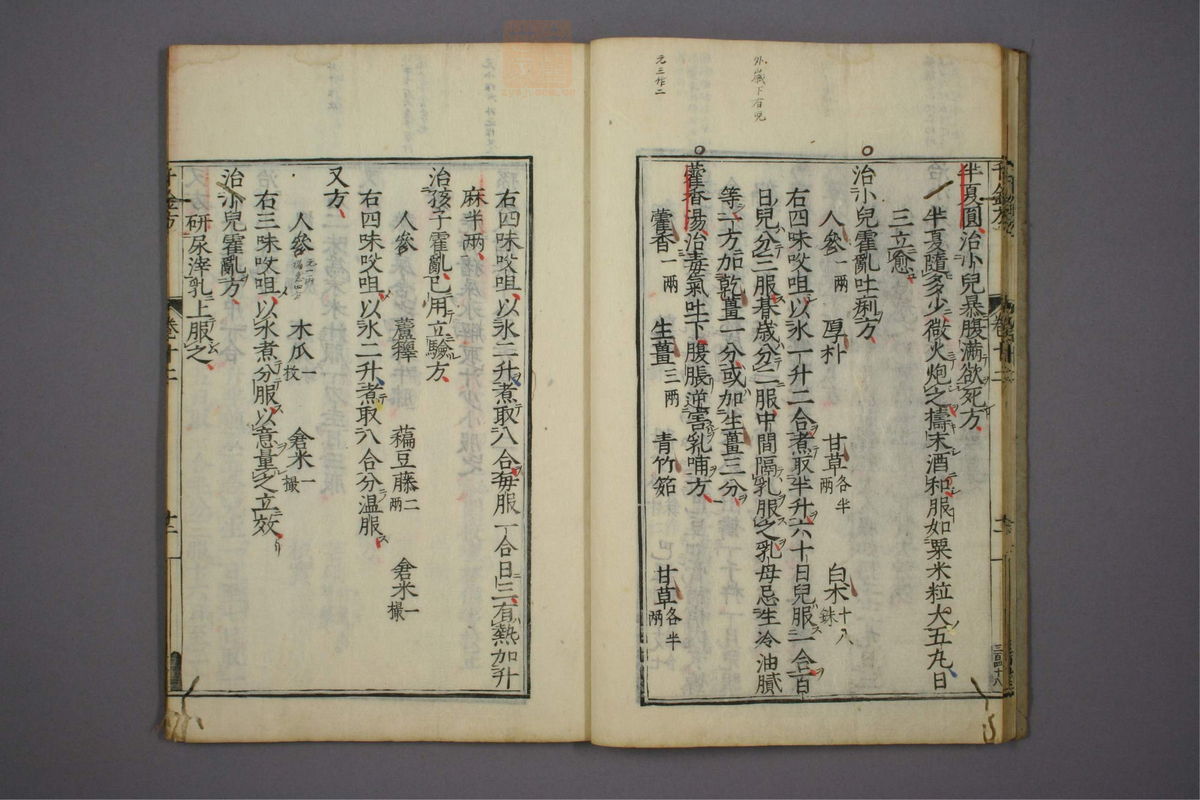 外臺下有咒
元三作二
半夏圓治小兒暴腹滿欲死方
半夏隨多少微火炮之擣末酒和服如粟米粒大五丸日
三立愈
治小兒霍亂吐痢方
人參一兩 厚朴 甘草各半兩 白朮十八銖
右四味㕮咀以水一升二合煮取半升六十日兒服一合百
日兒分三服朞歲分二服中間隔乳服之乳母忌生冷油膩
等一方加乾薑一分或加生薑三分
藿香湯治毒氣吐下腹脹逆害乳哺方
藿香一兩 生薑三兩 青竹筎 甘草各半兩
右四味㕮咀以水二升煮取八合每服一合日三有熱加升
麻半兩
治孩子霍亂已用立驗方
人參 蘆籜 藊豆藤二兩 倉米一撮
右四味㕮咀以水二升煮取八合分温服
又方
人參 木瓜一枚 倉米一撮
右三味㕮咀以水煮分服以意量之立效
治小兒霍亂方
研尿滓乳上服之
千金方 卷廿二 廿二